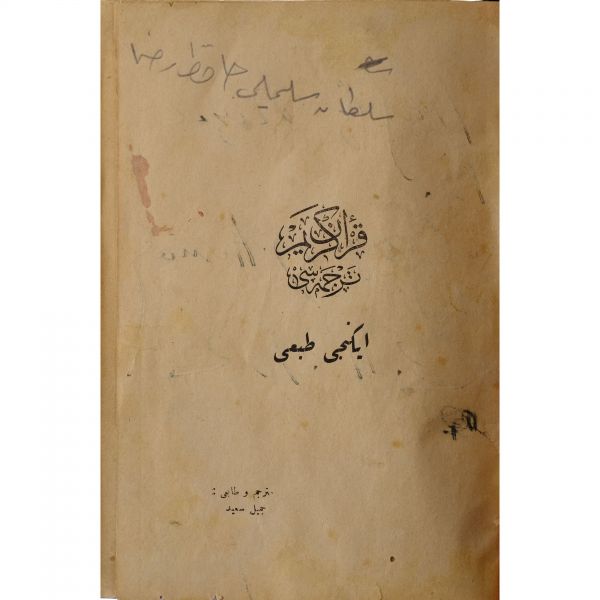 سلطان سليملى حافظ رضا
قرآن كريم
ترجمه سى
ايكنجى طبعى
مترجم و طابعى :
جميل سعيد